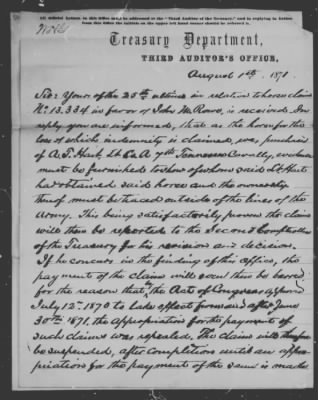 All official letters to this Office must be addressed to the "Third Auditor of the Treasury," and in replying to Letters
from this Office the initials on the upper left hand corner should be referred to.
Treasury Department,
THIRD AUDITOR'S OFFICE,
August 1st, 1871.
Sir: Yours of the 25th ultimo in relation to horse claim
No. 13.334 in favor of John M. Rowe, is received. In
reply you are informed, that as the horse for the
loss of which indemnity is claimed, was purchased
of A. J. Hart, Lt Co. A 7th Tennessee Cavalry, evidence
must be furnished to show of whom said Lt Hart
had obtained said horse and the ownership
thereof must be traced outside of the lines of the
Army. This being satisfactorily proven the claim
will then be reported to the Second Comptroller
of the Treasury for his revision and decision.
If he concurs in the finding of this Office, the
payment of the claim will even then be barred
for the reason that by the Act of Congress approved
July 12th 1870 to take effect from and after June
30th 1871, the appropriation for the payment of
such claims was repealed. The claim will therefore
be suspended, after completion until an appro-
priation for the payment of the same is made